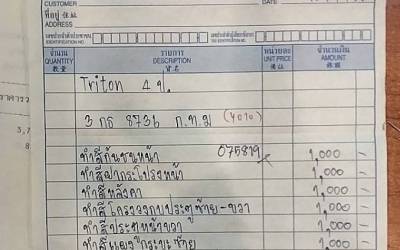 CUSTOMER
ที่อยู่ 住址
ADDRESS
เลขประจำตัวประชาชน
IDENTIFICATION NO.
เลขประจำตัวผู้เสียภาษีอากร
TAX IDENTIFICATION NO.
จำนวน รายการ หน่วยละ จำนวนเงิน
QUANTITY DESCRIPTION UNIT PRICE AMOUNT
數量 價 銀
Triton 4 ป.
3 กธ 8736 ก.ท.ม
ทำสีกันชนหน้า 075819 1,000 -
ทำสีฝากระโปรงหน้า 1,000 -
ทำสีหลังคา 1,000 -
ทำสีโครงวงกบประตูซ้าย-ขวา 1,000 -
ทำสีประตูหน้าขวา 1,000 -
ทำสีแผงกระบะซ้าย 1,000 -